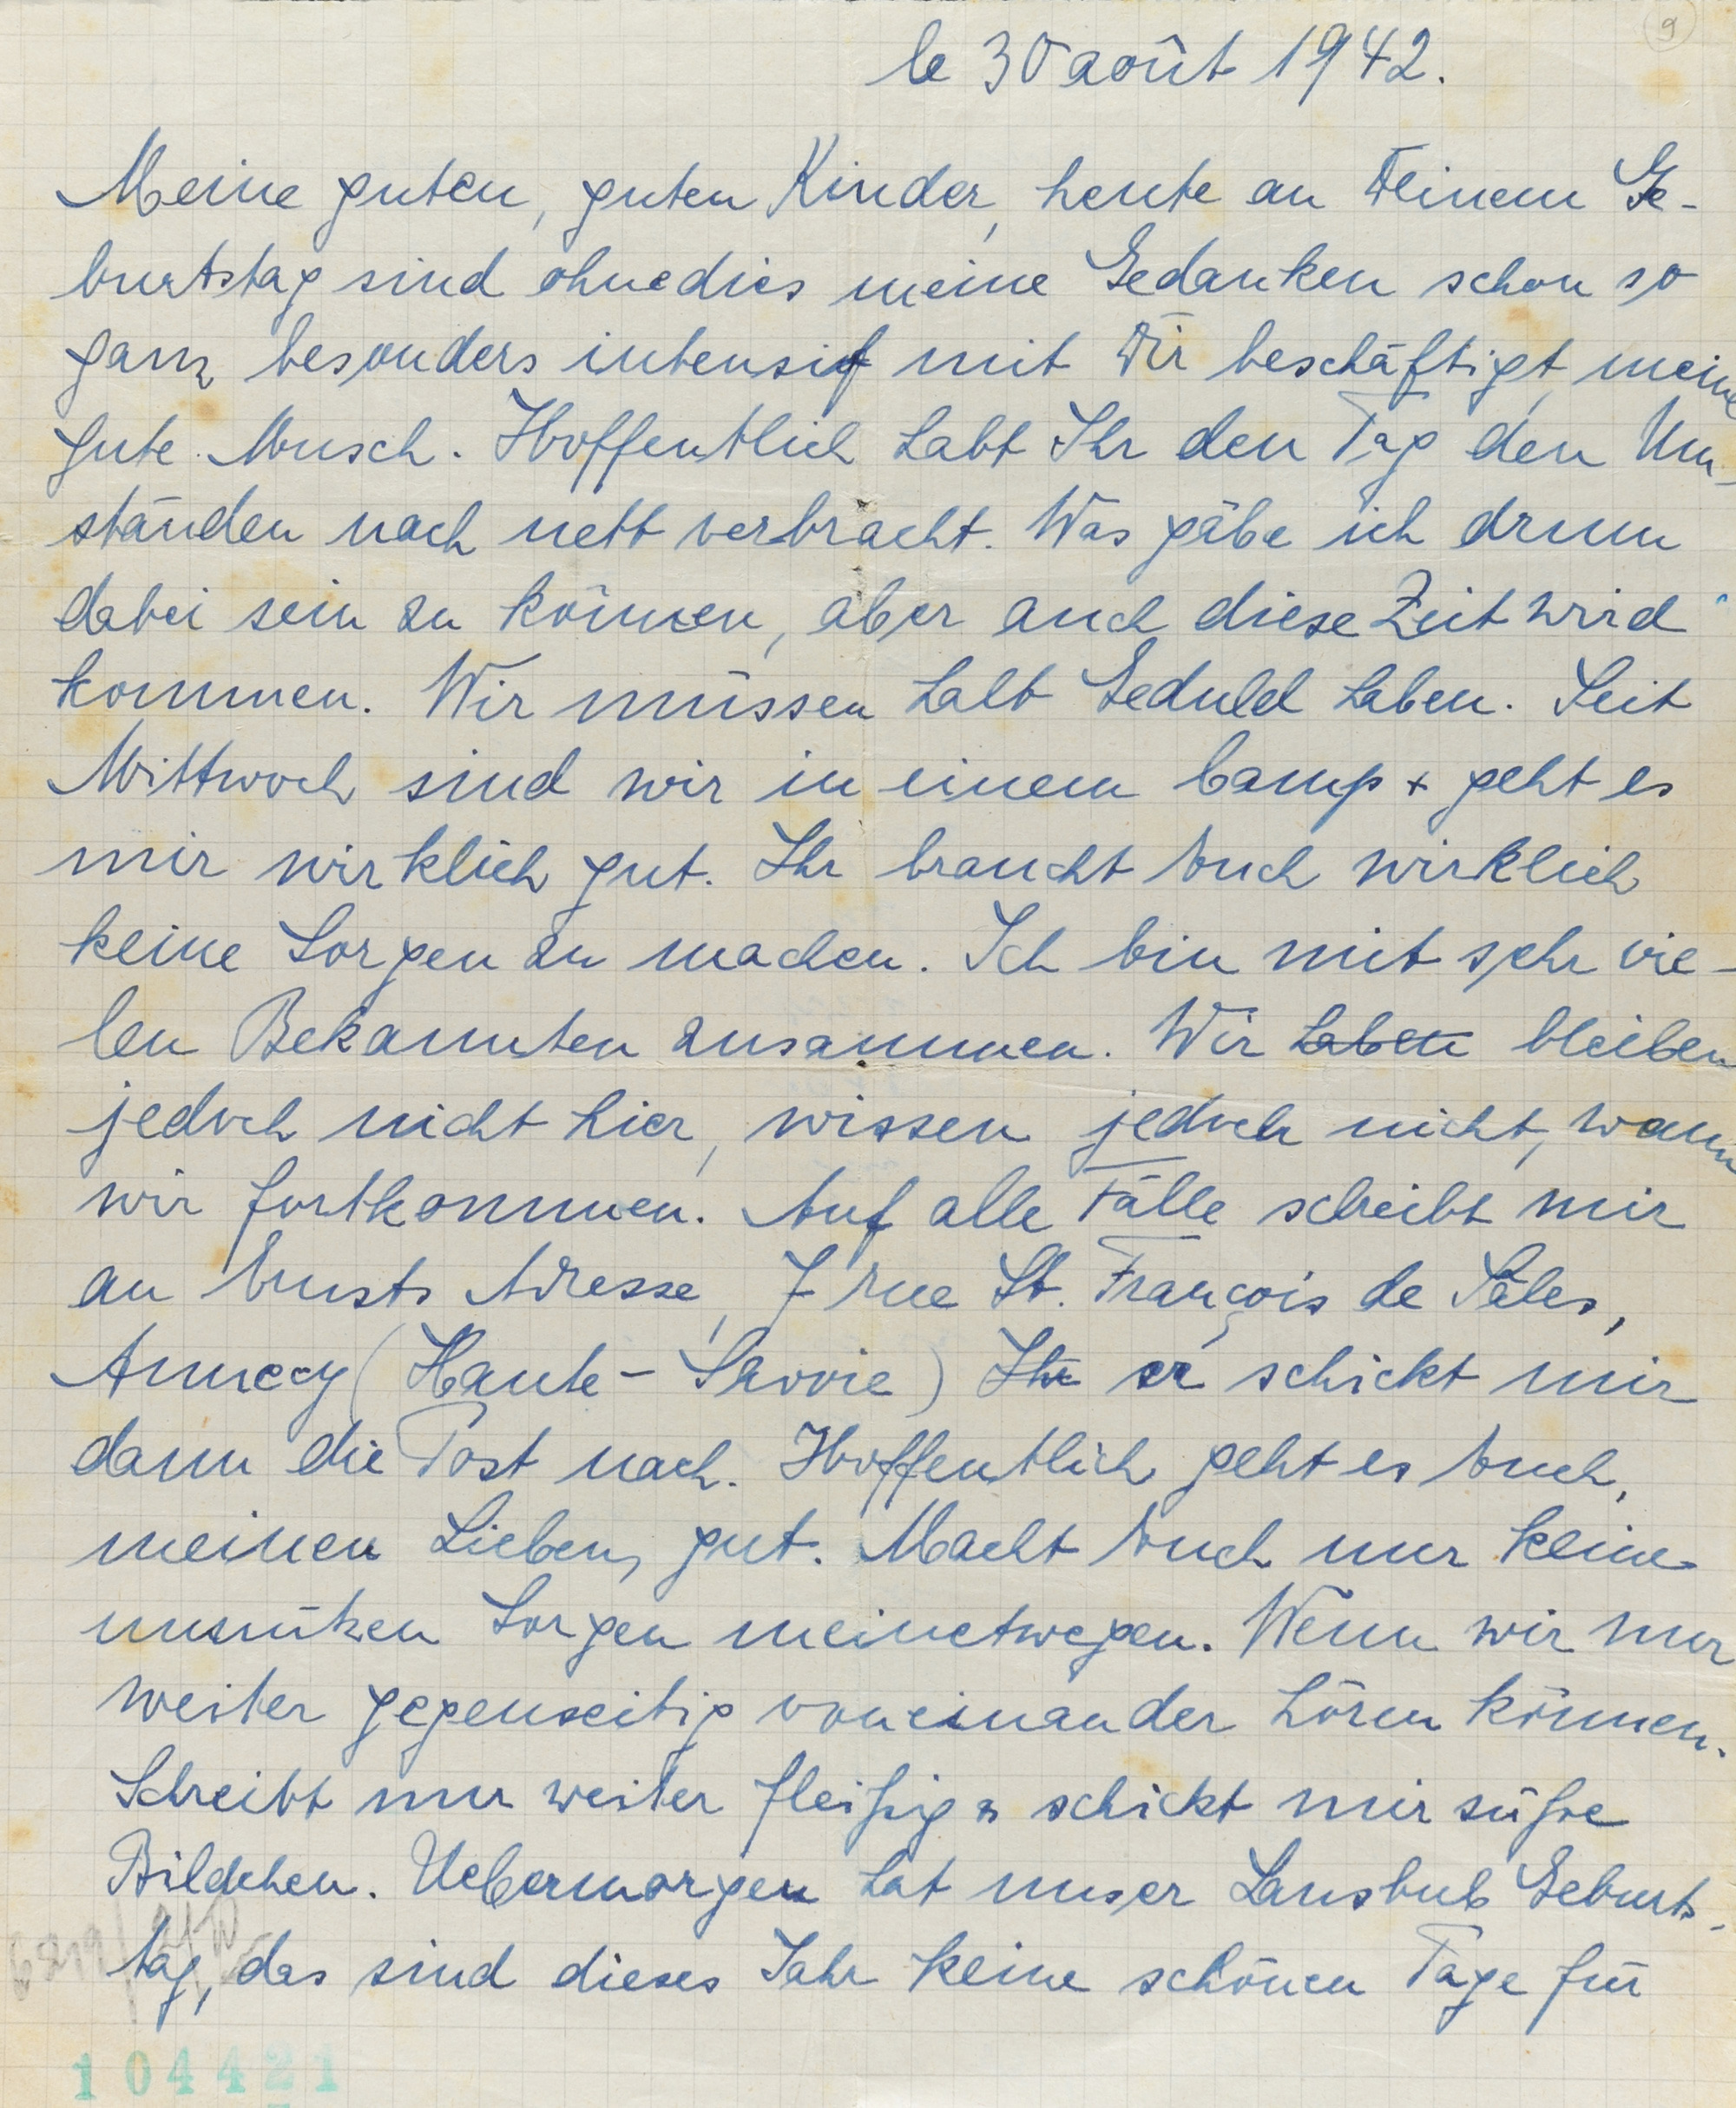 9
le 30 août 1942.
Meine guten, guten Kinder, heute an Deinem Ge-
burtstag sind ohnedies meine Gedanken schon so
ganz besonders intensif mit Dir beschäftigt, meine
gute Musch. Hoffentlich habt Ihr den Tag den Um-
ständen nach nett verbracht. Was gäbe ich drum
dabei sein zu können, aber auch diese Zeit wird
kommen. Wir müssen halt Geduld haben. Seit
Mittwoch sind wir in einem Camp + geht es
mir wirklich gut. Ihr braucht Euch wirklich
keine Sorgen zu machen. Ich bin mit sehr vie-
len Bekannten zusammen. Wir haben bleiben
jedoch nicht hier, wissen jedoch nicht, wann
wir fortkommen. Auf alle Fälle schreibt mir
an Ernsts Adresse, 7 rue St. François de Sales,
Annecy (Haute-Savoie) Ihr er schickt mir
dann die Post nach. Hoffentlich geht es Euch,
meinen Lieben, gut. Macht Euch nur keine
unnützen Sorgen meinetwegen. Wenn wir nur
weiter gegenseitig voneinander hören können.
Schreibt nur weiter fleißig & schickt mir süße
Bildchen. Uebermorgen hat unser Lausbub Geburts-
tag, das sind dieses Jahr keine schönen Tage für
104421